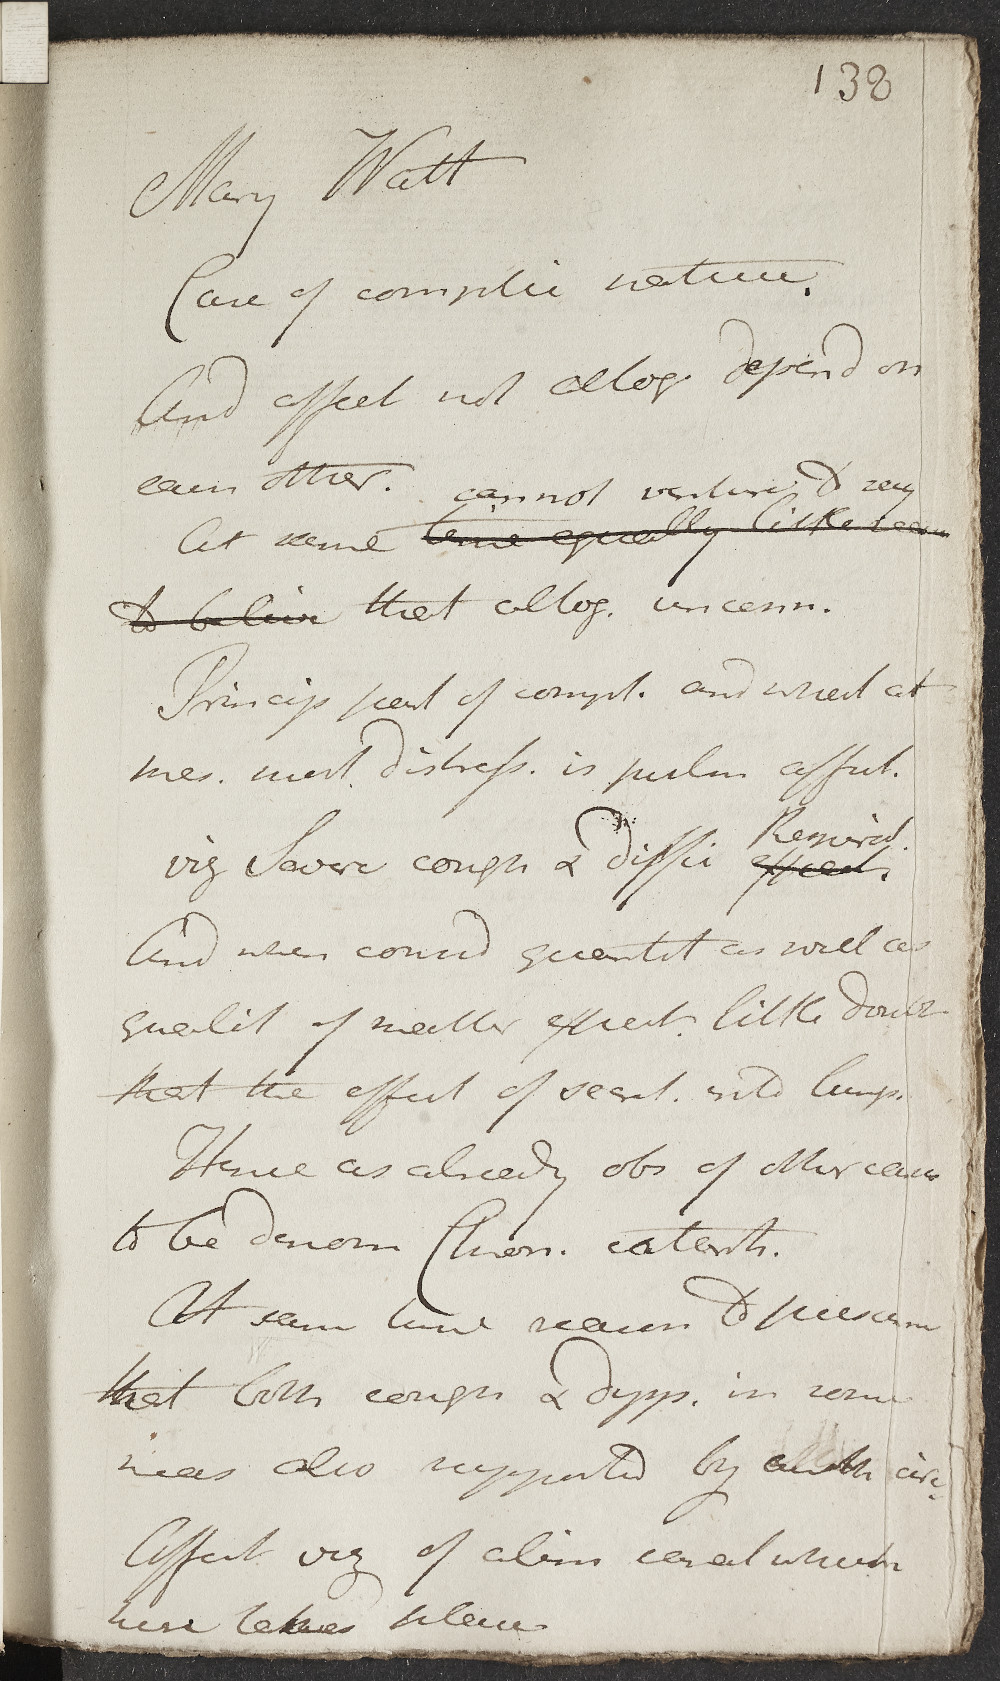 138
Mary Watt
Case of complic nature.
And affect not altog depend on
each other.
cannot venture to say
At same time equally little reason
to believe that altog. unconn.
Princip part of compt. and what at
pres. most distress. is pulm affect.
viz Severe cough & diffic Respirat.
expect.
And when consid quantit as well as
qualit of matter expect. little doubt
that the effect of secret. into lungs.
Hence as already obs of other cases
to be denom Chron. catarrh.
At same time reason to presum
that both cough & dysp. in some
meas also supported by anoth circ.
Affect viz of alim canal which
here takes place